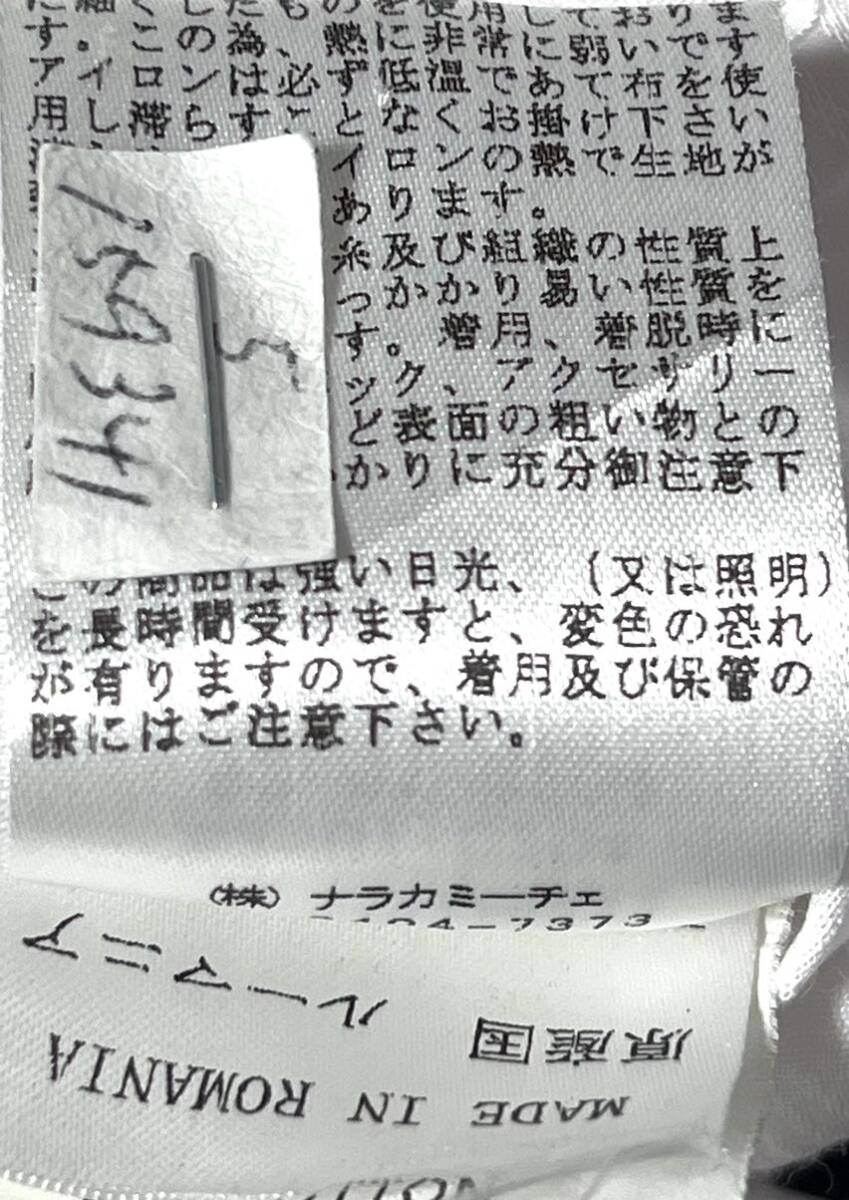 すこの為、の熱に非常に弱いです
。アイロンは必ず低温であて布をご使
用しらすとなくお掛け下さい
イロンの熱で生地が
あります。
糸及び組織の性質上
っかかり易い性質を
す。着用、着脱時に
ック、アクセサリー
ど表面の粗い物との
かりに充分御注意下
この商品は強い日光、(又は照明)
を長時間受けますと、変色の恐れ
が有りますので、着用及び保管の
際にはご注意下さい。
(株) ナラカミーチェ
-7373
159341
5
MADE IN ROMANIA
原産国
ルーマニア